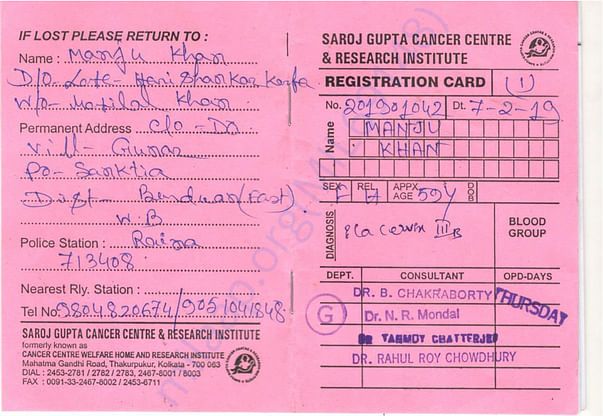 IF LOST PLEASE RETURN TO :
Name : Manju Khan
D/O- Late- Hari Shankar
W/O- Motilal Khan
Permanent Address C/O - DO
Vill-
Po- Sanktia
Dist- Burdwan (East)
W.B
Police Station : Raina
713408
Nearest Rly. Station :
Tel No. 9804820674/9051041848
SAROJ GUPTA CANCER CENTRE & RESEARCH INSTITUTE
formerly known as
CANCER CENTRE WELFARE HOME AND RESEARCH INSTITUTE
Mahatma Gandhi Road, Thakurpukur, Kolkata - 700 063
DIAL : 2453-2781 / 2782 / 2783, 2467-8001 / 8003
FAX : 0091-33-2467-8002 / 2453-6711
SAROJ GUPTA CANCER CENTRE
& RESEARCH INSTITUTE
REGISTRATION CARD (1)
No. 201901042 Dt. 7-2-19
Name MANJU
KHAN
SEX F REL H APPX. AGE 59Y DOB
DIAGNOSIS Cervix IIIB
BLOOD GROUP
DEPT. CONSULTANT OPD-DAYS
DR. B. CHAKRABORTY THURSDAY
G Dr. N. R. Mondal
DR TANMOY CHATTERJEE
DR. RAHUL ROY CHOWDHURY